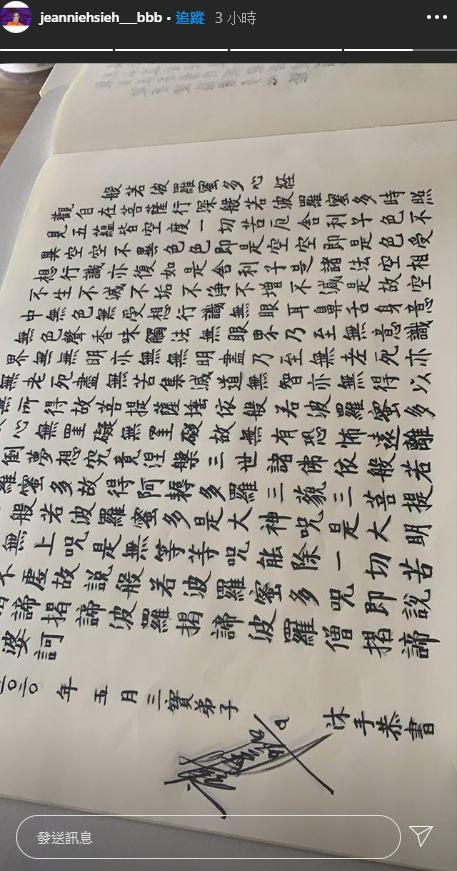 jeanniehsieh__bbb • 追蹤 3 小時
般若波羅蜜多心経
觀自在菩薩行深般若波羅蜜多時照
見五蘊皆空度一切苦厄舍利子色不
異空空不異色色即是空空即是色受
想行識亦復如是舍利子是諸法空相
不生不滅不垢不淨不增不減是故空
中無色無受想行識無眼耳鼻舌身意
無色聲香味觸法無眼界乃至無意識
界無無明亦無無明盡乃至無老死亦
無老死盡無苦集滅道無智亦無得以
無所得故菩提薩埵依般若波羅蜜多
心無罣礙無罣礙故無有恐怖遠離
倒夢想究竟涅槃三世諸佛依般若
羅蜜多故得阿耨多羅三藐三菩提
般若波羅蜜多是大神咒是大明
無上咒是無等等咒能除一切苦
不虛故說般若波羅蜜多咒即說
諦揭諦波羅揭諦波羅僧揭諦
婆訶
二〇二〇年五月三寶弟子
沐手恭書
發送訊息